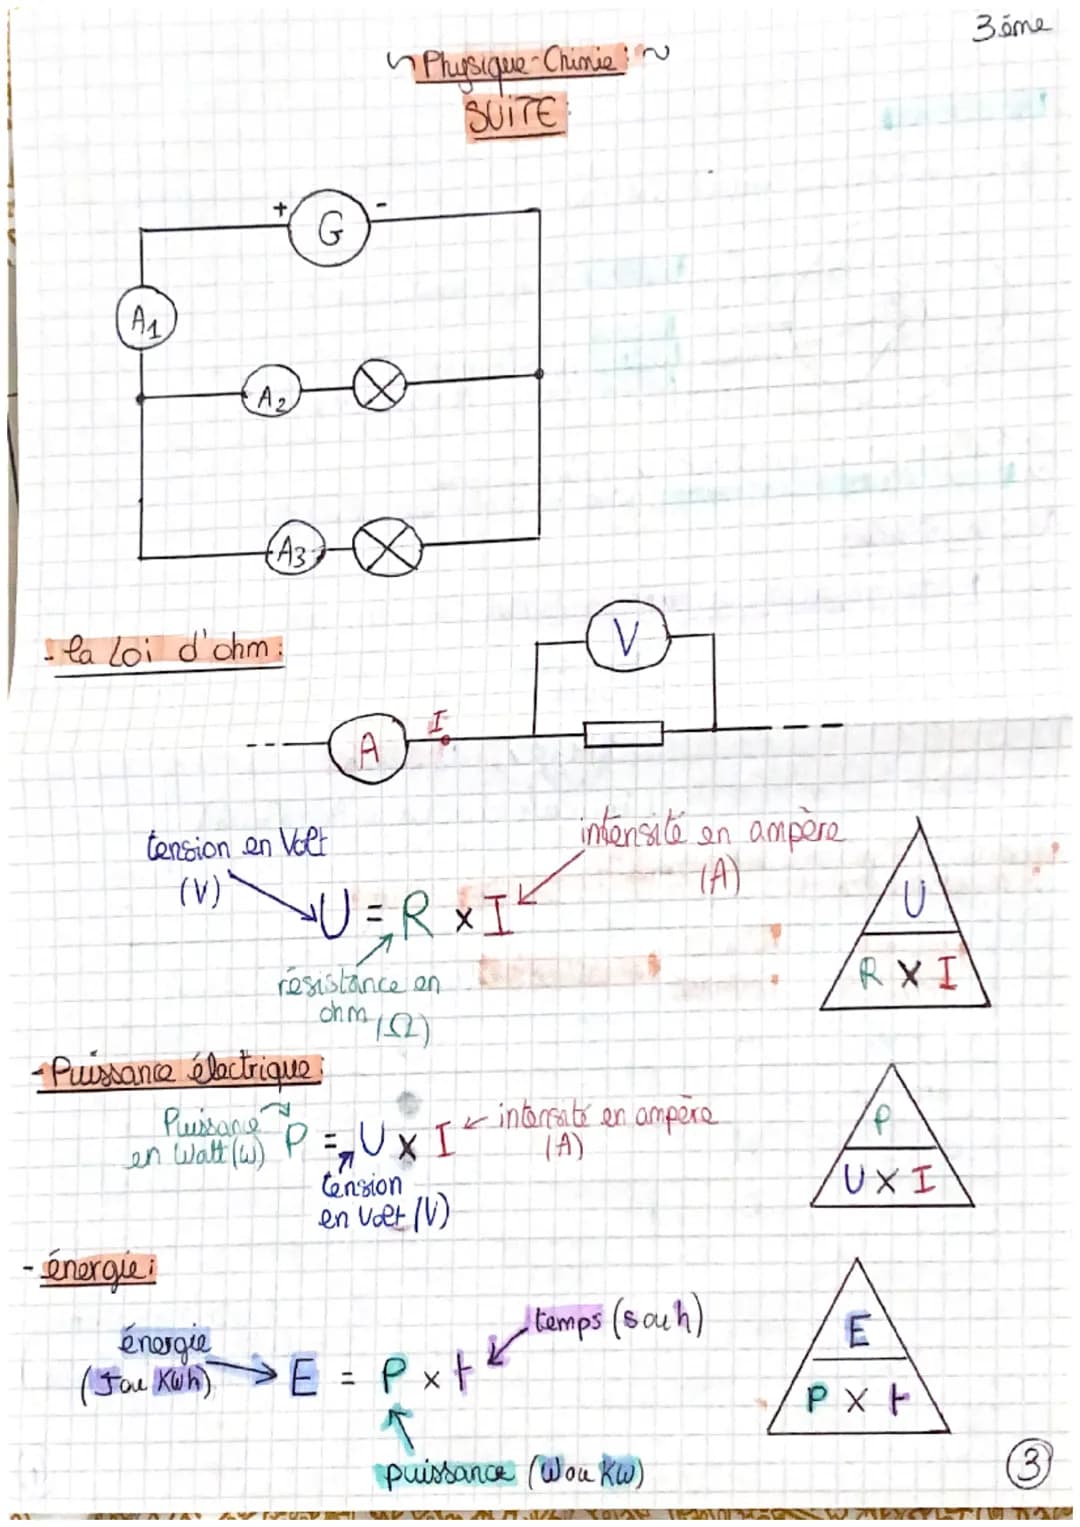 3ème
~ Physique-Chimie: ~
SUITE:
+ G -
A1
A2
A3
- la Loi d'ohm:
V
A
I
tension en Volt
(V)
intensité en ampère
(A)
U = R x I
résistance en
ohm (Ω)
U
R X I
- Puissance électrique:
Puissance
en Watt (W)
P = U x I
intensité en ampère
(A)
tension
en Volt (V)
P
U X I
- énergie:
énergie
(J ou KWh)
E = P x t
temps (s ou h)
puissance (W ou KW)
E
P X t
3